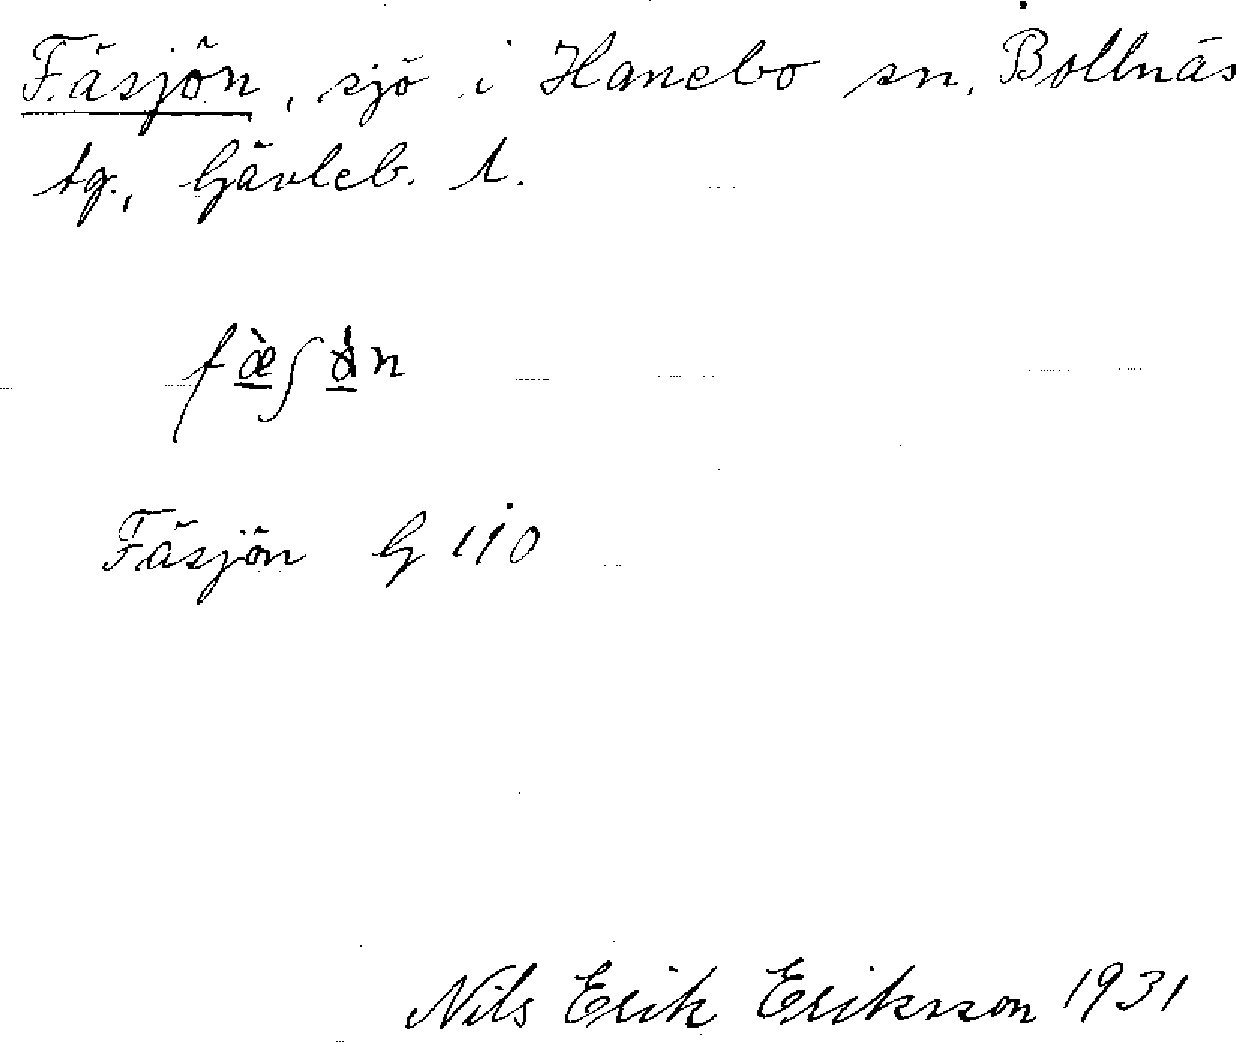 Fäsjön, sjö i Hanebo sn, Bollnäs
tg., Gävleb. l.
Fäsjön G 110
Nils Erik Eriksson 1931